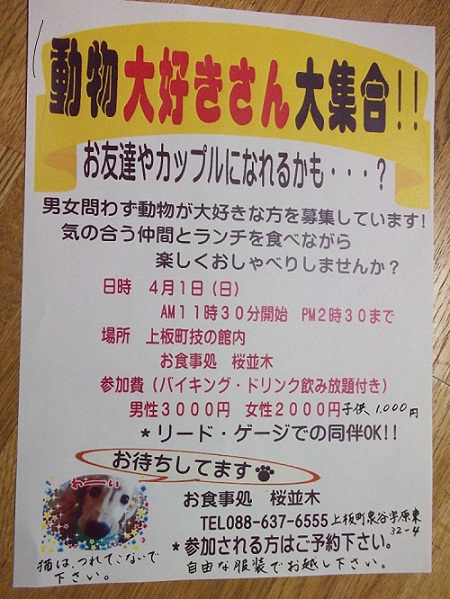 動物大好きさん大集合!!
お友達やカップルになれるかも・・・?
男女問わず動物が大好きな方を募集しています!
気の合う仲間とランチを食べながら
楽しくおしゃべりしませんか?
日時 4月1日(日)
AM11時30分開始 PM2時30まで
場所 上板町技の館内
お食事処 桜並木
参加費(バイキング・ドリンク飲み放題付き)
男性3000円 女性2000円子供1.000円
*リード・ゲージでの同伴OK!!
お待ちしてます
わーい
お食事処 桜並木
TEL088-637-6555上板町泉谷字原東
32-4
*参加される方はご予約下さい。
猫は、つれてこないで
下さい。
自由な服装でお越し下さい。